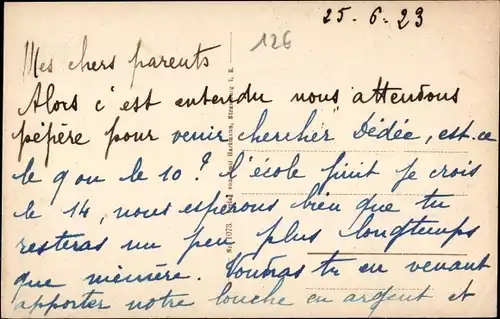 25-6-23
126
Mes chers parents
Alors c'est entendu nous attendons
pépère pour venir chercher Dédée, est-ce
le 9 ou le 10? l'école finit je crois
le 14, nous espérons bien que tu
resteras un peu plus longtemps
que mémère. Voudras tu en venant
apporter notre louche en argent et